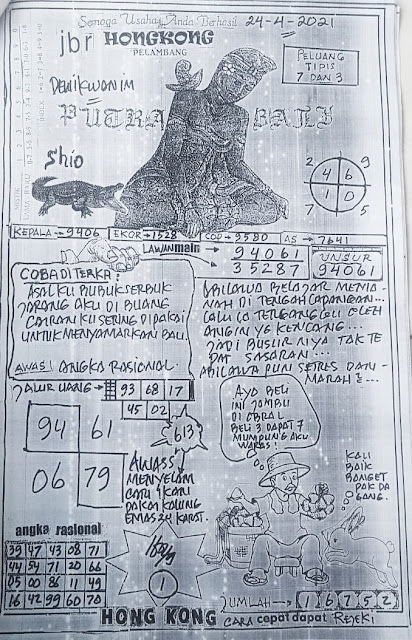 Semoga Usaha Anda Berhasil 24-4-2021
jbr HONGKONG
PELAMBANG
PELUANG
TIPIS
7 DAN 3
Dewikwanim
PUTRA BALI
Shio
2 9
4 6
1 0
7 5
KEPALA → 9406 EKOR → 1528 COD → 9580 AS → 7641
LAWAN main → 94061
→ 35287
UNSUR
94061
COBA DI TERKA:
ASAL KU BUBUK SERBUK
JARANG AKU DI BUANG
CAIRAN KU SERING DI PAKAI
UNTUK MENYAMARKAN BAU.
AWAS! ANGKA RASIONAL.
ABILAWA BELAJAR MEMA
NAH DI TENGAH LAPANGAN...
LALU IA TERGANGGU OLEH
ANGIN YG KENCANG...
JADI BUSUR NYA TAK TE
PAT SASARAN...
ABILAWA PUN SETRES DAN
MARAH²...
JALUR UANG → 93 68 17
45 02
94 61
06 79
613
AWASS
MENYELAM
CARI IKAN
PAKAI KALUNG
EMAS 24 KARAT.
AYO BELI
INI JAMBU
DI OBRAL
BELI 3 DAPAT 7
MUMPUNG AKU
WARAS!
KALI
BAIK
BANGET
PAK DA
GANG.
angka rasional
39 47 43 08 71
44 54 71 20 66
05 00 86 11 49
16 42 99 60 70
1
JUMLAH → 1 6 7 5 2
HONG KONG CARA cepat dapat REJEKI